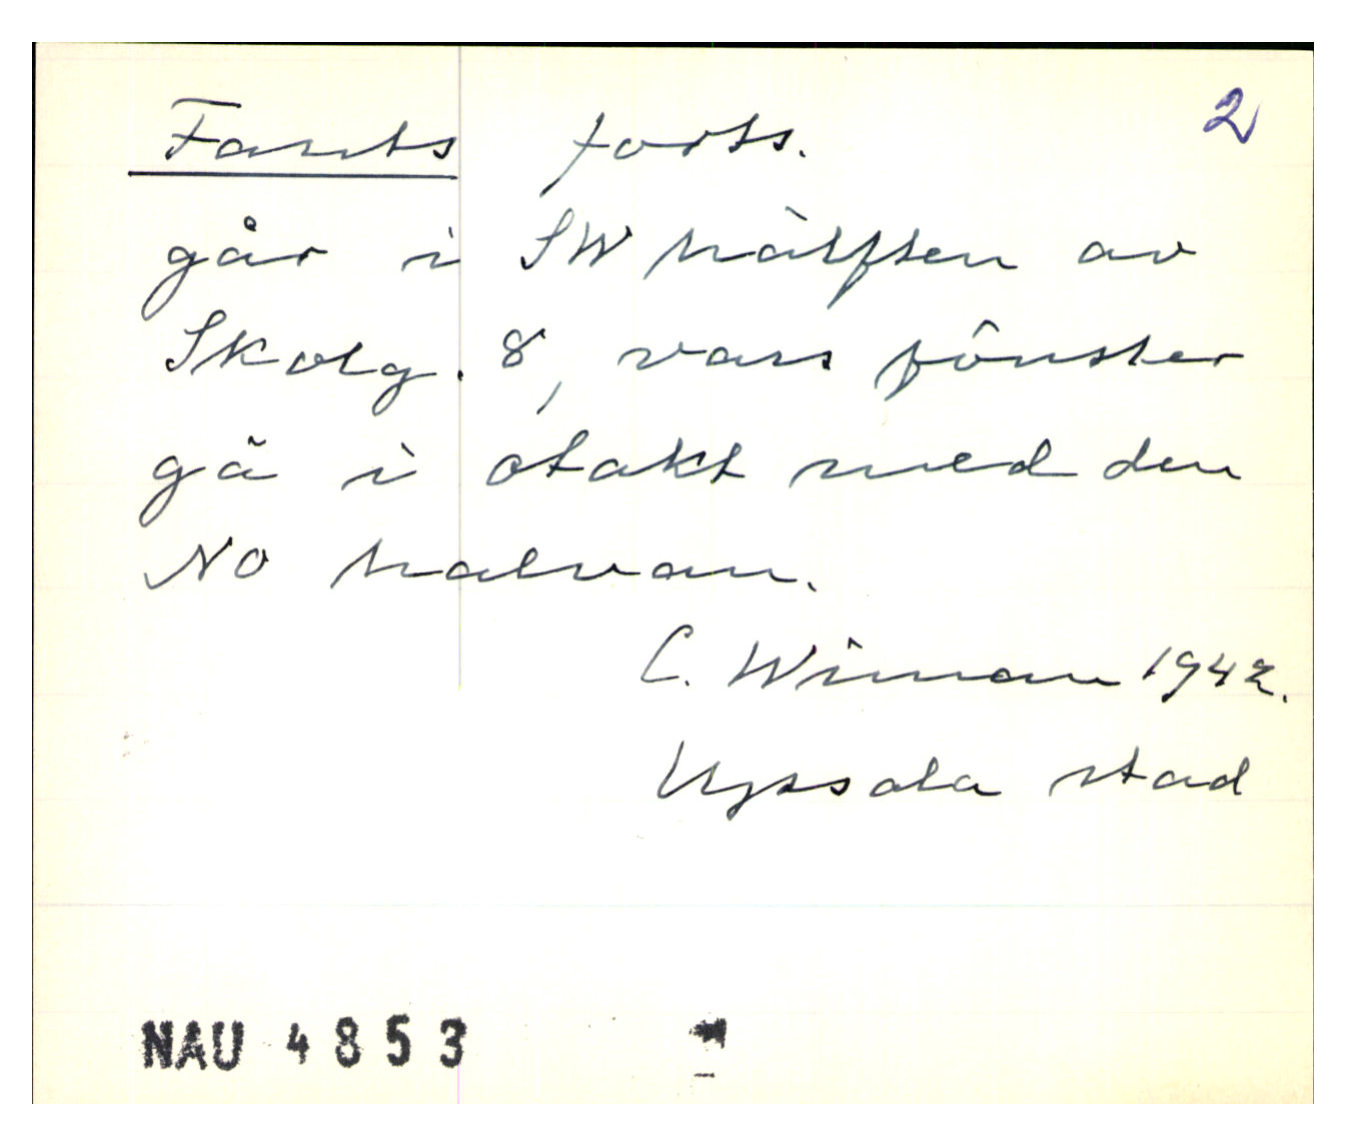 Fants forts. 2
går i SW hälften av
Skolg. 8, vars fönster
gå i otakt med den
NO halvan.
C. Wiman 1942.
Uppsala stad
NAU 4853